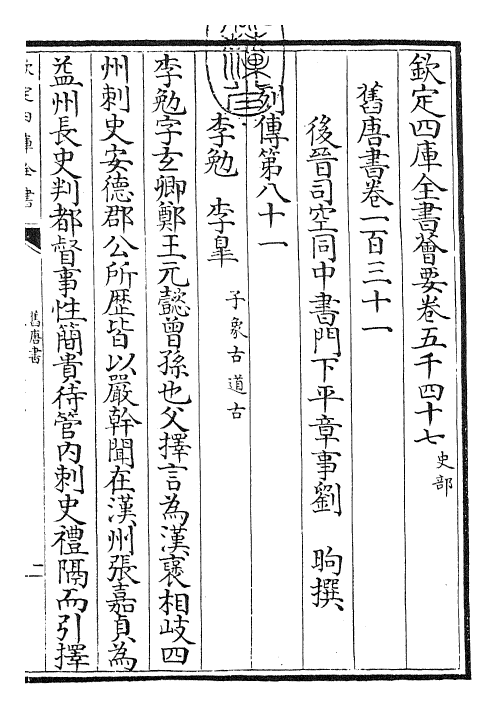 欽定四庫全書薈要卷五千四十七 史部
舊唐書卷一百三十一
後晉司空同中書門下平章事劉 昫撰
列傳第八十一
李勉 李臯 子象古 道古
李勉字玄卿鄭王元懿曾孫也父擇言為漢褒相岐四
州刺史安德郡公所歷皆以嚴幹聞在漢州張嘉貞為
益州長史判都督事性簡貴待管内刺史禮隔而引擇
欽定四庫全書
舊唐書